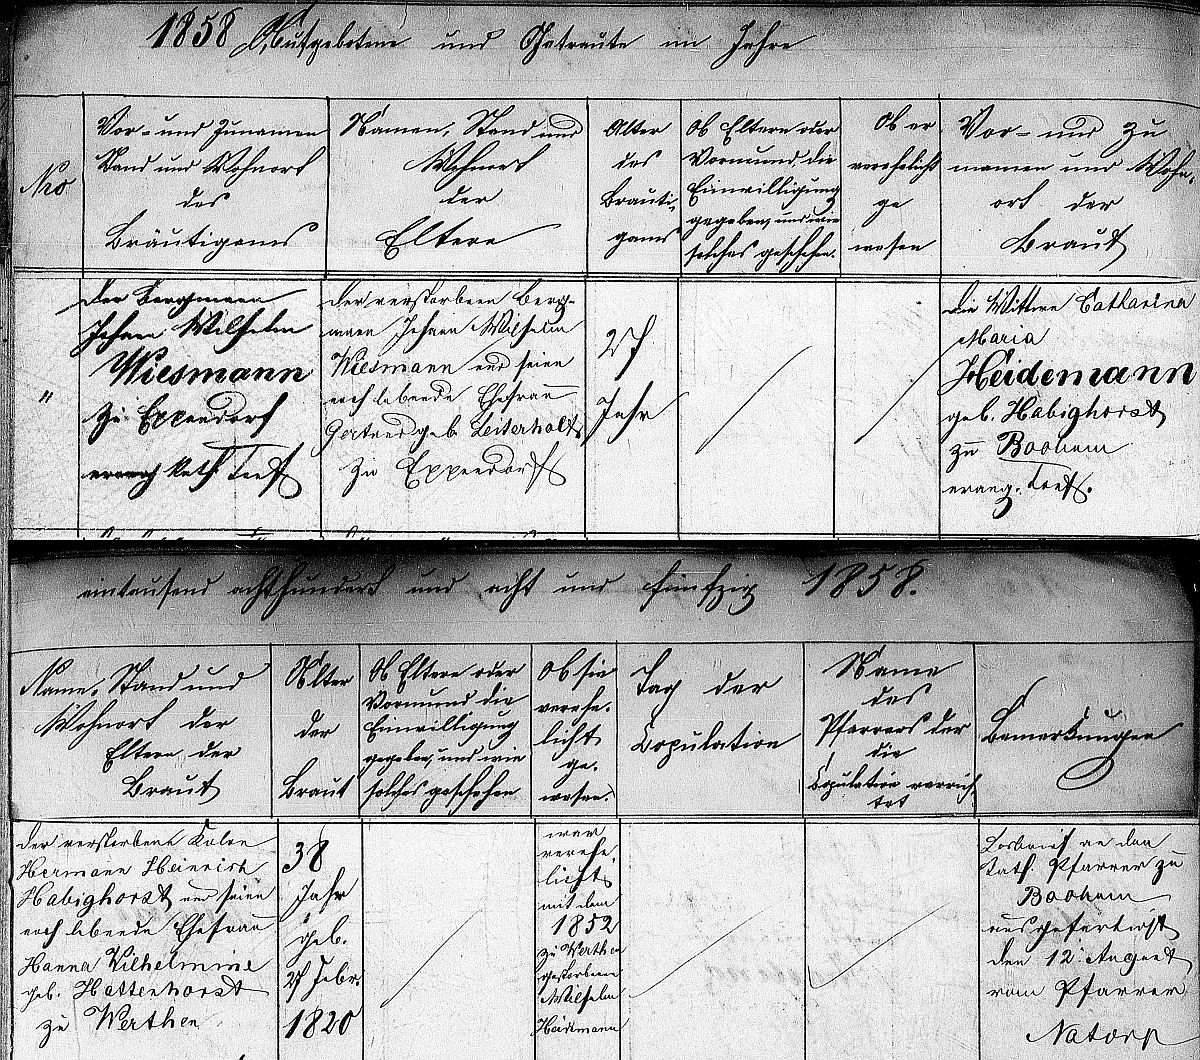 1858 Aufgebotene und Getraute im Jahre
Nro
Vor- und Zunamen
Stand und Wohnort
des
Bräutigams
Namen, Stand und
Wohnort
der
Eltern
Alter
des
Bräuti-
gams
Ob Eltern oder
Vormund die
Einwilligung
gegeben, und wie
solches geschehen.
Ob er
verehelicht
ge
wesen
Vor- und Zu
namen und Wohn-
ort der
Braut
"
der Bergmann
Johann Wilhelm
Wiesmann
zu Eppendorf
der verstorbene Berg-
mann Johann Wilhelm
Wiesmann und seine
noch lebende Ehefrau
Gertrud geb. Leiterholt
zu Eppendorf
27
Jahr
die Wittwe Catharina
Maria
Heidemann
geb. Habighorst
zu Bochum
evang.
eintausend achthundert und acht und fünfzig 1858.
Name, Stand und
Wohnort der
Eltern der
Braut
Alter
der
Braut
Ob Eltern oder
Vormund die
Einwilligung
gegeben, und wie
solches geschehen
Ob sie
verehe-
licht
ge-
wesen.
Tag der
Copulation
Name
des
Pfarrers der
die
Copulation verrich
tet
Bemerkungen
der verstorbene Kolon
Hermann Heinrich
Habighorst und seine
noch lebende Ehefrau
Hanna Wilhelmine
geb. Hattenhorst
zu Werthen
38
Jahr
geb.
27 Febr.
1820
war
verehe-
licht
mit dem
1852
zu Werthen
gestorbenen
Wilhelm
Heidemann
Losbrief an den
kath. Pfarrer zu
Bochum
ausgefertigt
den 12 August
vom Pfarrer
Natorp